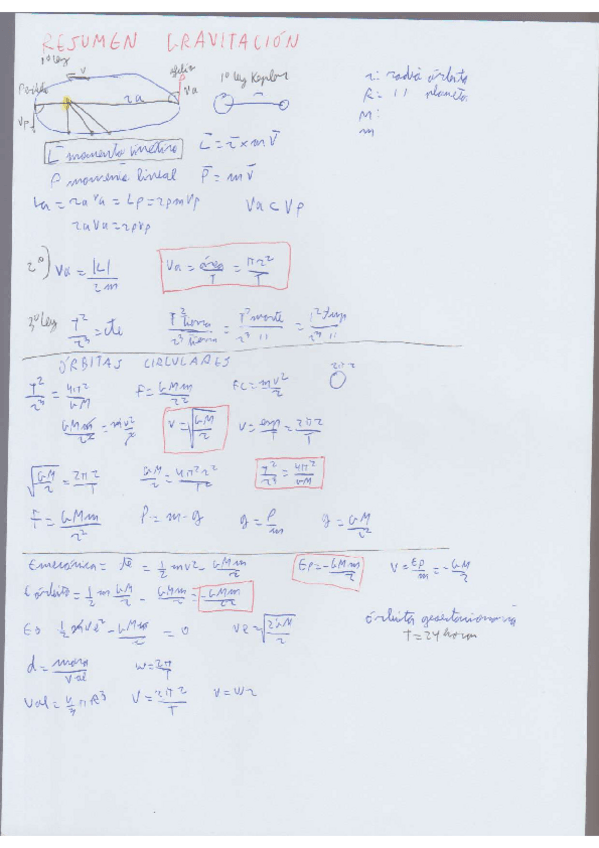 RESUMEN GRAVITACIÓN
1º ley
v
afelio
1º ley Kepler
r: radio órbita
R: 11 planeta
M:
m
ra
va
Vp
L momento cinético
L = r x m v
P momento lineal P = m v
La = ra va = Lp = rp m vp Va < Vp
ra va = rp vp
2º) Va = |L| / 2m Va = área / T = πr² / T
3º ley T² / r³ = cte T² tierra / r³ tierra = T² marte / r³ 11 = T² / r³ 11
ÓRBITAS CIRCULARES
T² / r³ = 4π² / GM F = GMm / r² Fc = mv² / r 2πr
GMm / r² = mv² / r v = √(GM / r) v = esp / T = 2πr / T
√(GM / r) = 2πr / T GM / r = 4π²r² / T² T² / r³ = 4π² / GM
F = GMm / r² P = m · g g = P / m g = GM / r²
Emecánica = cte = 1/2 mv² - GMm / r Ep = -GMm / r V = Ep / m = -GM / r
E órbita = 1/2 m GM / r - GMm / r = -GMm / 2r
1/2 mve² - GMm / r = 0 ve = √(2GM / r)
órbita geoestacionaria
T = 24 horas
d = masa / Vol w = 2π / T
Vol = 4/3 π R³ V = 2πr / T v = wr